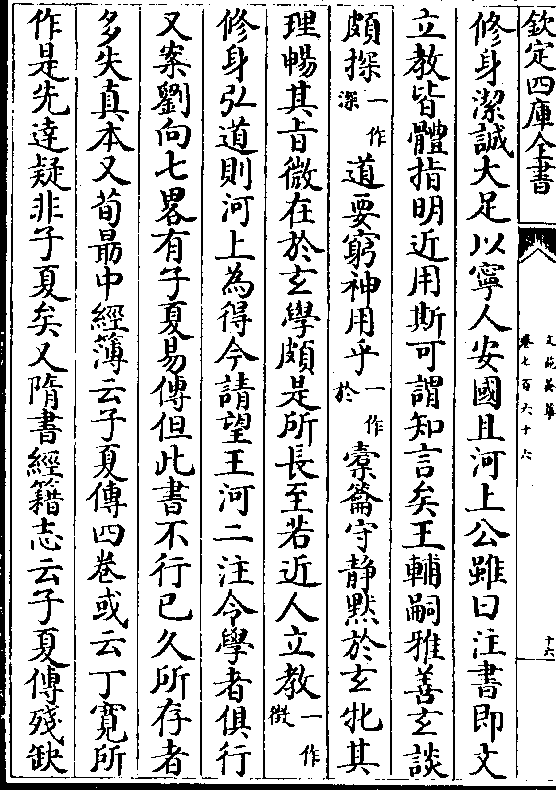 欽定四庫全書
文苑英華
卷七百六十六
十六
修身潔誠大足以寧人安國且河上公雖曰注書即文
立教皆體指明近用斯可謂知言矣王輔嗣雅善玄談
頗探一作深道要窮神用乎一作於橐籥守静默於玄牝其
理暢其旨微在於玄學頗是所長至若近人立教一作徴
修身弘道則河上為得今請望王河二注令學者俱行
又案劉向七畧有子夏易傳但此書不行已久所存者
多失真本又荀朂中經簿云子夏傳四卷或云丁寛所
作是先達疑非子夏矣又隋書經籍志云子夏傳殘缺